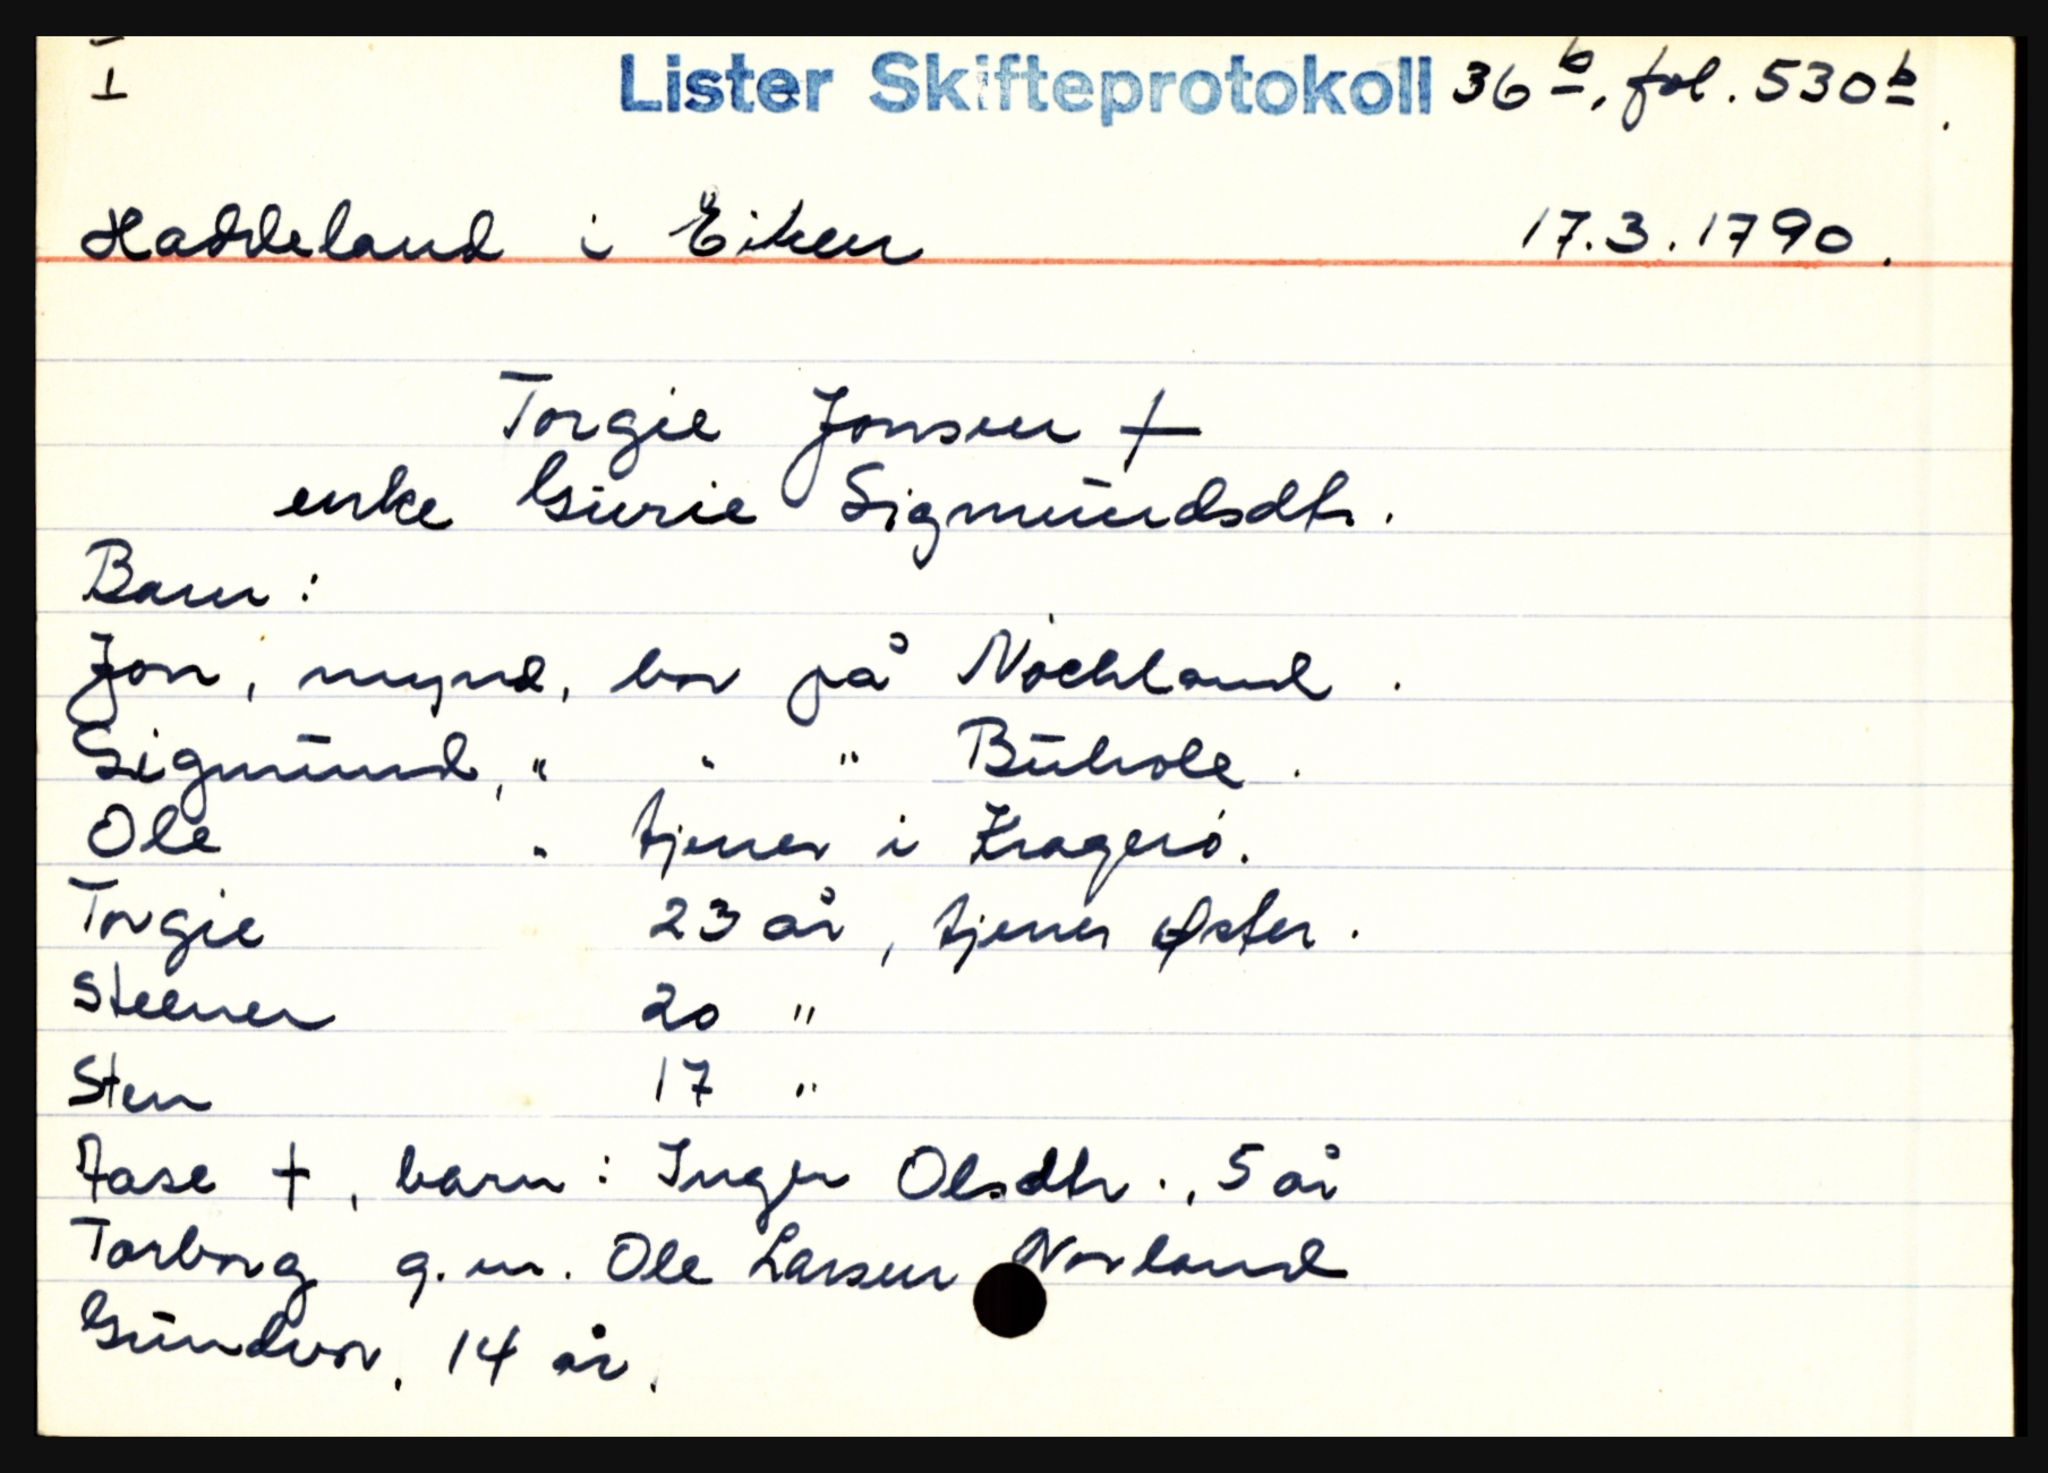 I
Lister Skifteprotokoll 36 b, fol. 530 b.
Haddeland i Eiken 17.3.1790.
Torgie Jonsen †
enke Gurie Sigmundsdtr.
Barn:
Jon, mynd, bor på Nochland.
Sigmund, " " " Buhole.
Ole " tjener i Kragerø.
Torgie 23 år, tjener Øster.
Steener 20 "
Sten 17 "
Aase †, barn: Inger Olsdtr., 5 år
Torborg g.m. Ole Larsen Norland
Gundvor, 14 år.